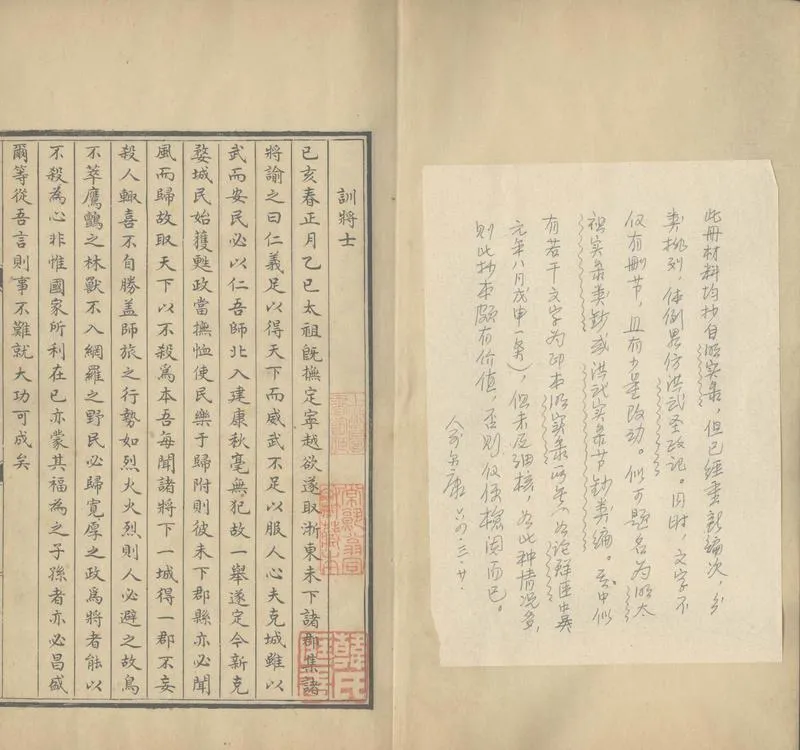 此册材料均抄自明实录，但已经重新编次，分
类排列，体例略仿洪武圣政记。同时，文字不
仅有删节，且有少量改动。似可题名为明太
祖实录类钞或洪武实录节钞类编。书中似
有若干文字为印本明实录所无（如论群臣中吴
元年八月戊申一条），但未及细核，如此种情况多，
则此抄本颇有价值，否则仅供检阅而已。
六四·三·廿·
訓將士
己亥春正月乙巳太祖既撫定寧越欲遂取浙東未下諸郡集諸
將諭之曰仁義足以得天下而威武不足以服人心夫克城雖以
武而安民必以仁吾師比入建康秋毫無犯故一舉遂定今新克
婺城民始獲甦政當撫恤使民樂于歸附則彼未下郡縣亦必聞
風而歸故取天下以不殺爲本吾每聞諸將下一城得一郡不妄
殺人輒喜不自勝蓋師旅之行勢如烈火火烈則人必避之故鳥
不萃鷹鸇之林獸不入網羅之野民必歸寛厚之政爲將者能以
不殺為心非惟國家所利在己亦蒙其福為之子孫者亦必昌盛
爾等從吾言則事不難就大功可成矣